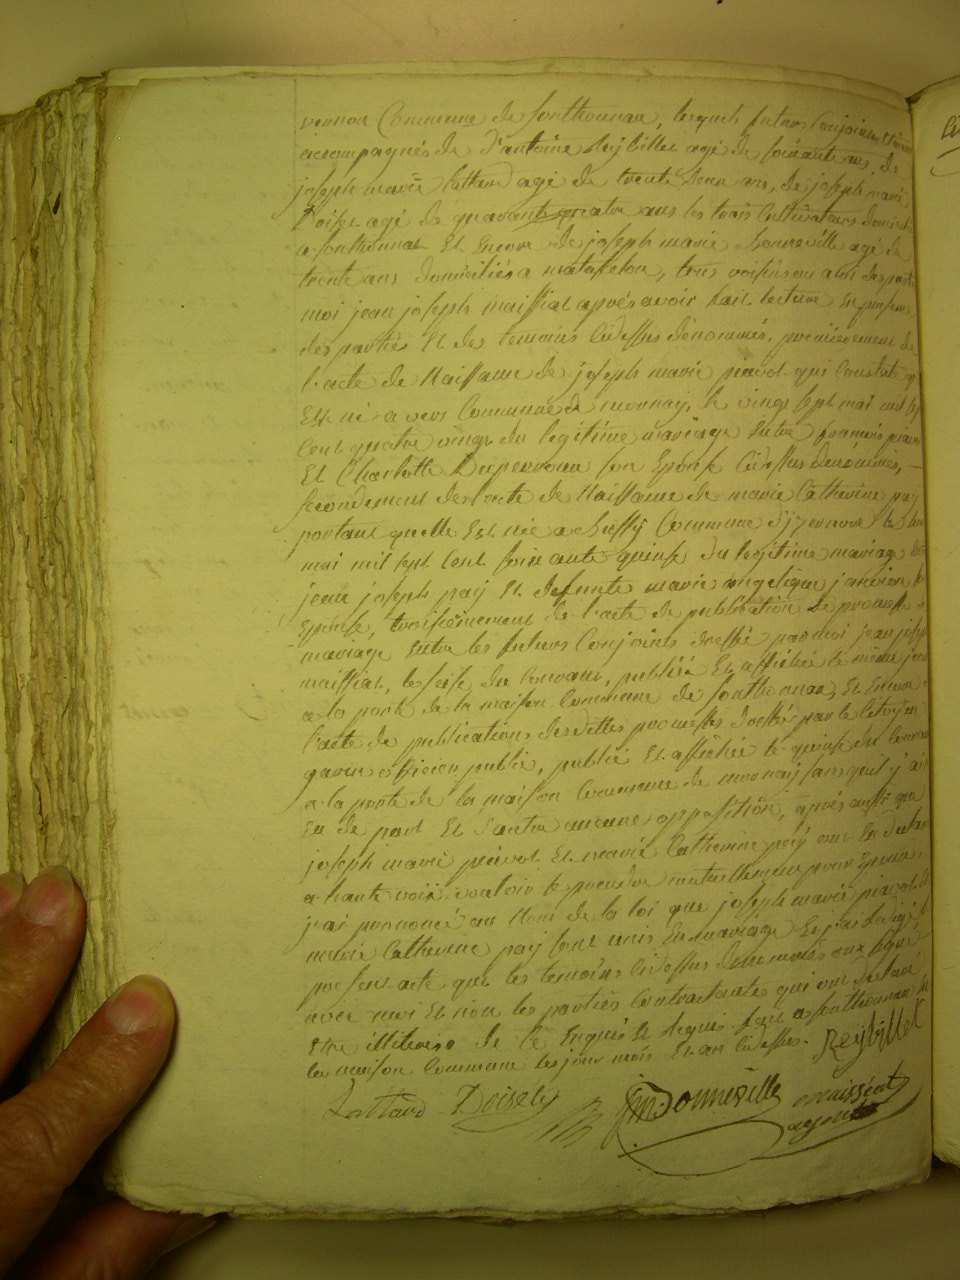 vernon Commune de Sonthonnax, lesquels futurs Conjoints étoient
accompagnés de d'antoine Reybillet agé de soixante ans, de
joseph marie Lattard agé de trente deux ans, de joseph marie
Doiset agé de quarante quatre ans les trois Cultivateurs domiciliés
a Sonthonnax Et Encore de joseph marie Bonneville agé de
trente ans domiciliés a matafelon, tous voisins ou amis des parties
moi jean joseph maissiat après avoir fait lecture En presence
des parties Et des temoins Cidessus dénommés, premièrement de
l'acte de Naissance de joseph marie piavot qui Constate qu'il
Est né a vers Commune de mornay, le vingt sept mai mil sept
Cent quatre vingt du legitime mariage Entre francois piavot
Et Charlotte son Epouse Cidessus dénommés,
secondement de l'acte de Naissance de marie Catherine pay
portant quelle Est née a Chussy Commune d'izernore le
mai mil sept Cent soixante quinse du legitime mariage de
jean joseph pay Et defunte marie angelique janvion son
Epouse, troisièmement de l'acte de publication de promesse de
mariage Entre les futurs Conjoints dressé par moi jean joseph
maissiat, le seise du Courant, publiée Et affichée le même jour
a la porte de la maison Commune de Sonthonnax, Et Encore
l'acte de publications desdittes promesses dressé par le Citoyen
officier public, publié Et affichée le quinse du Courant
a la porte de la maison Commune de mornay sans quil y ait
Eu de part Et d'autre aucune opposition, après aussi que
joseph marie piavot Et marie Catherine pay ont Eu déclaré
a haute voix vouloir se prendre mutuellement pour Epoux
j'ai prononcé au Nom de la loi que joseph marie piavot Et
marie Catherine pay sont unis En mariage Et j'ai rédigé le
present acte que les temoins Cidessus denommés ont signé
avec moi Et non les parties Contractantes qui ont declaré
Etre illiteres de Ce Enquis Et Requis fait a Sonthonnax En
la maison Commune les jour mois Et an Cidessus. Reybillet
Lattard Doiset jm Bonneville maissiat